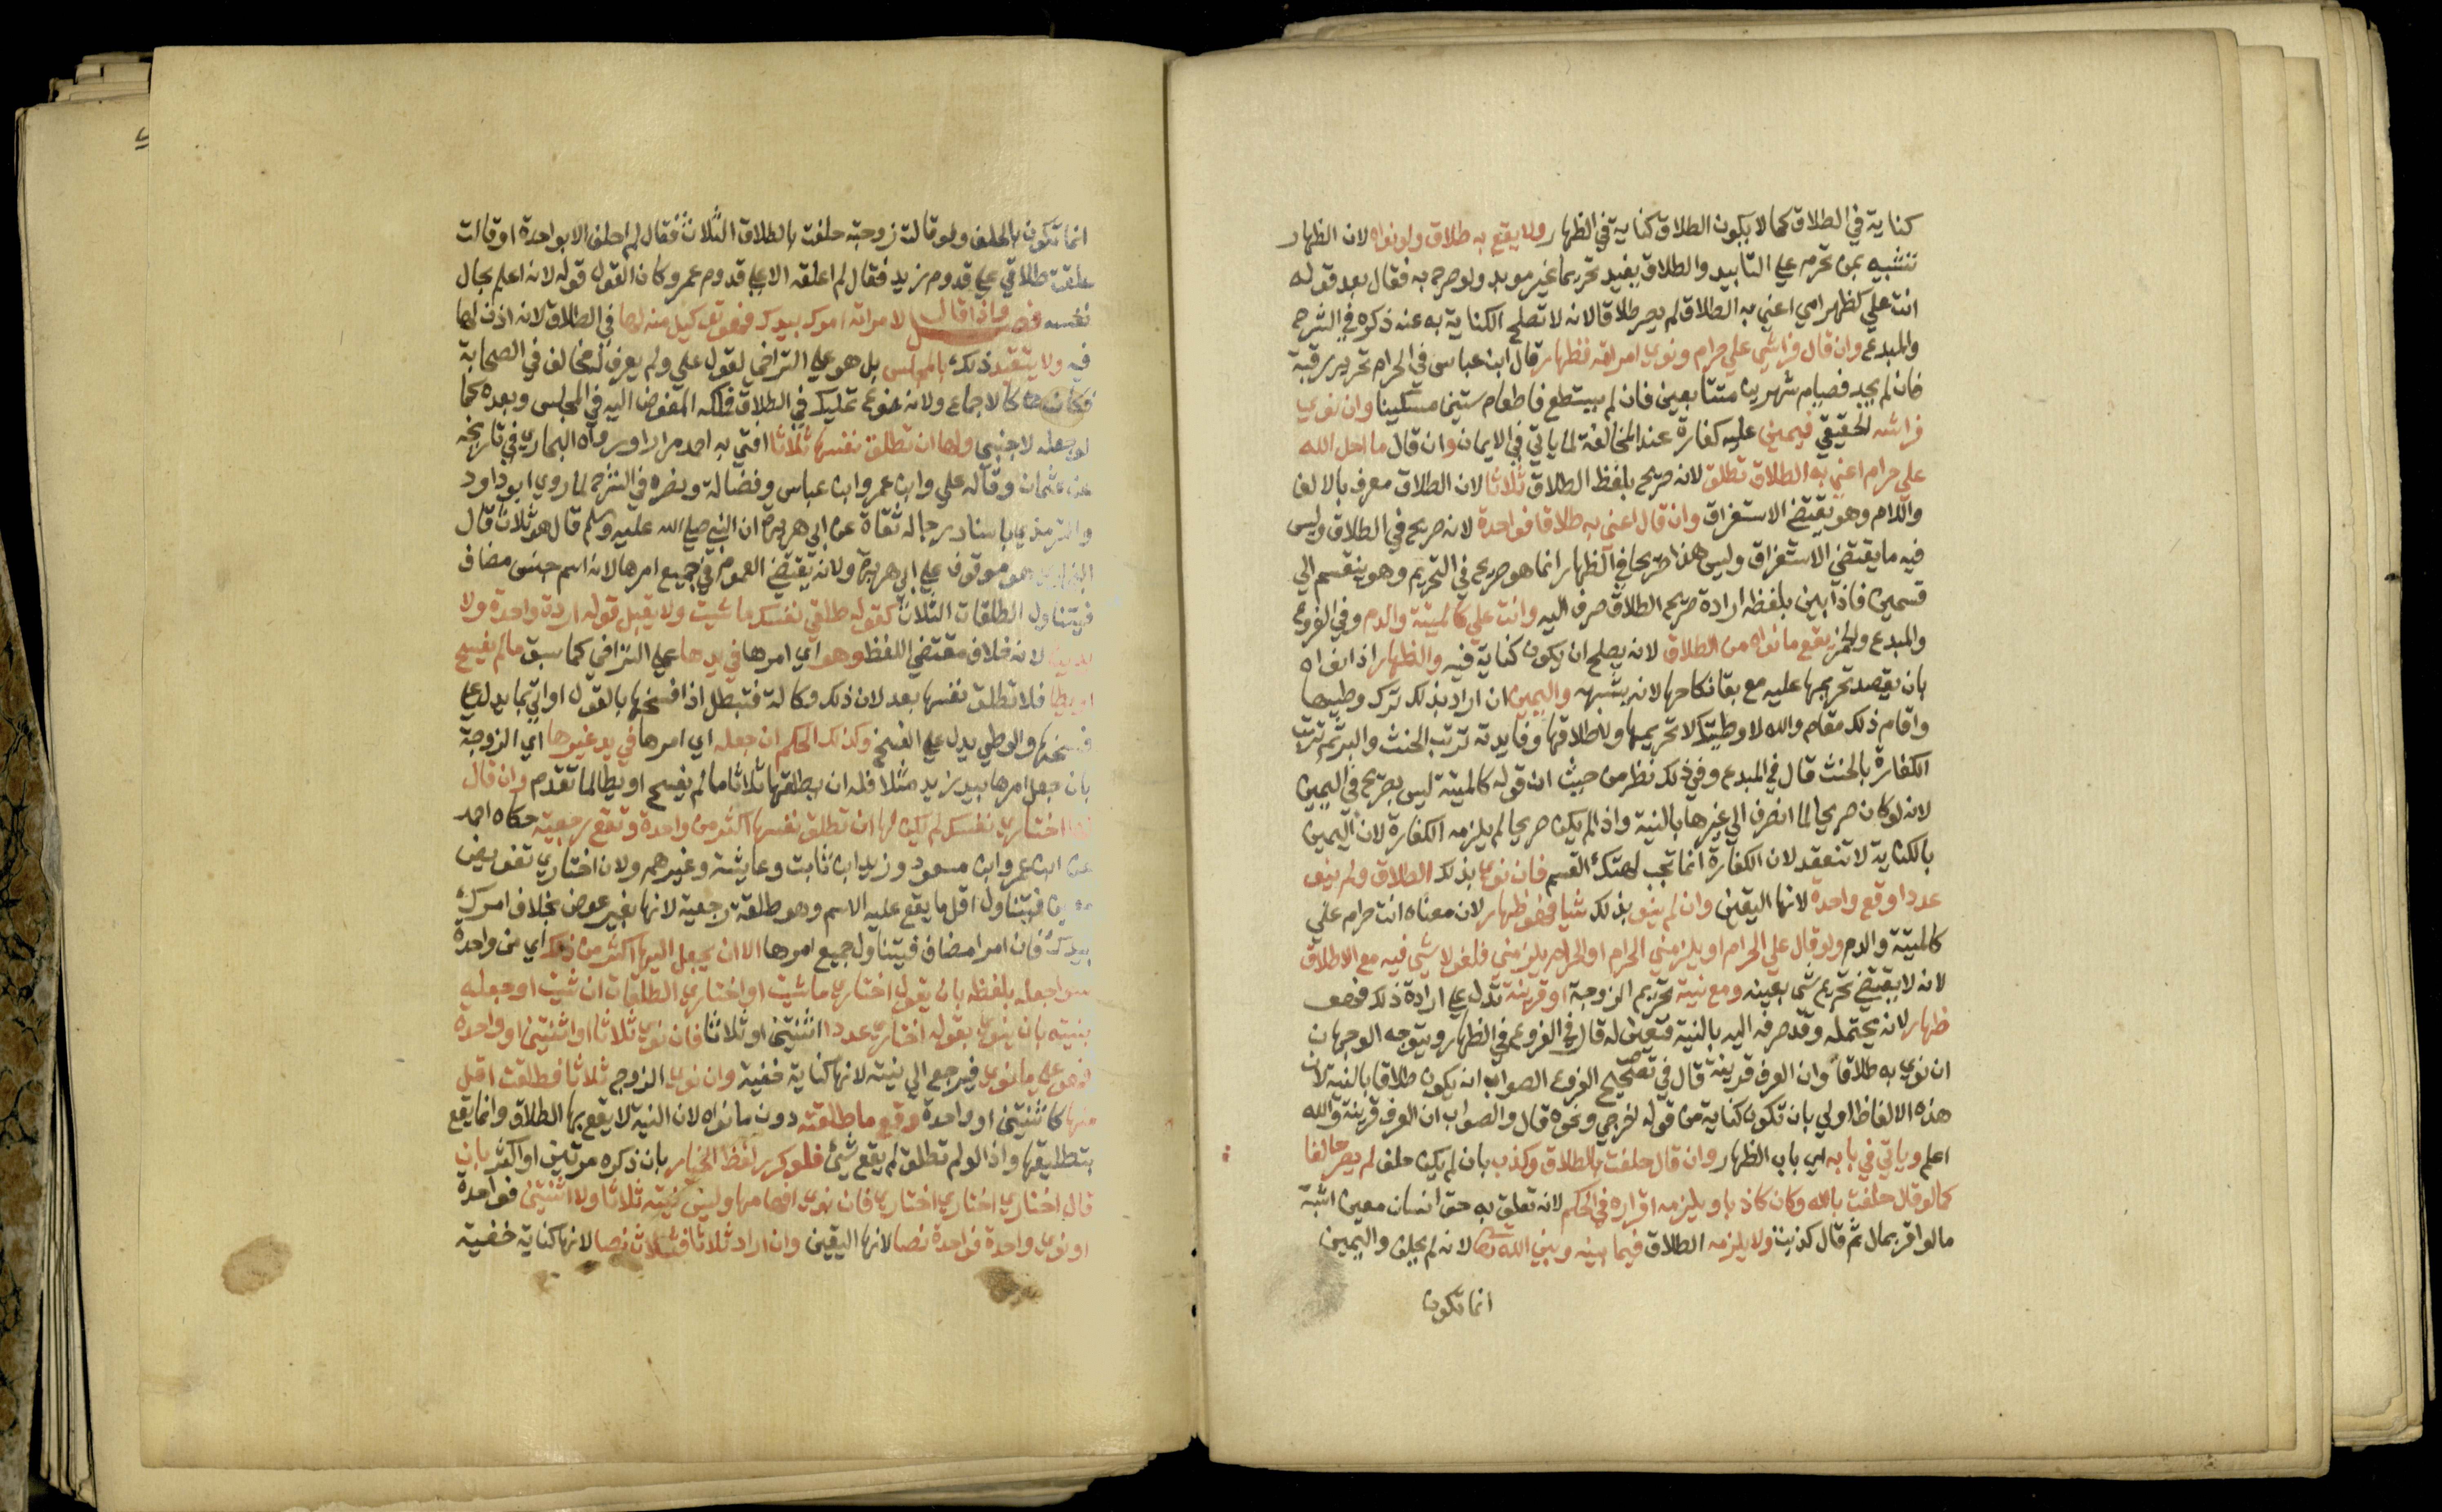 كناية في الطلاق كما لا يكون الطلاق كناية في الظهار ولا يقع به طلاق ولو نواه لان الظهار
تشبيه بمن تحرم علي التابيد والطلاق يفيد تحريما غير موبد ولو صرح به فقال بعد قوله
انت علي كظهر امي اعني به الطلاق لم يصر طلاقا لانه لا تصلح الكناية به عنه ذكره في الشرح
والمبدع وان قال فراشي علي حرام ونوي امراته فظهار قال ابن عباس في الحرام تحرير رقبة
فان لم يجد فصيام شهرين متتابعين فان لم يستطع فاطعام ستين مسكينا وان نوي
فراشه الحقيقي فيمين عليه كفارة عند المخالفة لما ياتي في الايمان وان قال ما احل الله
علي حرام اعني به الطلاق تطلق لانه صريح بلفظ الطلاق ثلاثا لان الطلاق معرف بالالف
واللام وهو يقتضي الاستغراق وان قال اعني به طلاقا فواحدة لانه صريح في الطلاق وليس
فيه ما يقتضي الاستغراق وليس هذا صريحا في الظهار انما هو صريح في التحريم وهو ينقسم الي
قسمين فاذا بين بلفظه ارادة صريح الطلاق صرف اليه وانت علي كالميتة والدم وفي الفروع
والمبدع والخمر يقع ما نواه من الطلاق لانه يصلح ان يكون كناية فيه والظهار اذا نواه
بان يقصد تحريمها عليه مع بقا نكاحها لانه يشبهه واليمين ان اراد بذلك ترك وطيها
واقام ذلك مقام والله لا وطيتك لا تحريمها ولا طلاقها وفايدته ترتب الحنث والبر ثم ترتب
الكفارة بالحنث قال في المبدع وفي ذلك نظر من حيث ان قوله كالميتة ليس بصريح في اليمين
لانه لو كان صريحا لما انصرف الي غيرها بالنية واذا لم يكن صريحا لم يلزمه الكفارة لان اليمين
بالكناية لا تنعقد لان الكفارة انما تجب لهتك القسم فان نوي بذلك الطلاق ولم ينو
عددا وقع واحدة لانها اليقين وان لم ينو بذلك شيا فهو ظهار لان معناه انت حرام علي
كالميتة والدم ولو قال علي الحرام او يلزمني الحرام او الحرام يلزمني فلغو لا شي فيه مع الاطلاق
لانه لا يقتضي تحريم شي بعينه ومع نية تحريم الزوجة او قرينة تدل علي ارادة ذلك فهو
ظهار لانه يحتمله وقد صرفه اليه بالنية فتعين له قال في الفروع في الظهار ويتوجه الوجهان
ان نوي به طلاقا وان العرف قرينة قال في تصحيح الفروع الصواب انه يكون طلاقا بالنية لان
هذه الالفاظ اولي بان تكون كناية من قوله اخرجي ونحوه قال والصواب ان العرف قرينة والله
اعلم وياتي في بابه اي باب الظهار وان قال حلفت بالطلاق وكذب بان لم يكن حلف لم يصر حالفا
كما لو قال حلفت بالله وكان كاذبا ويلزمه اقراره في الحكم لانه تعلق به حق انسان معين اشبه
ما لو اقر بمال ثم قال كذبت ولا يلزمه الطلاق فيما بينه وبين الله تعالى لانه لم يحلف واليمين
انما تكون
انما تكون بالحلف ولو قالت زوجته حلفت بالطلاق الثلاث فقال لم احلف الا بواحدة او قالت
علقت طلاقي علي قدوم زيد فقال لم اعلقه الا علي قدوم عمرو كان القول قوله لانه اعلم بحال
نفسه فصل فاذا قال لامراته امرك بيدك فهو توكيل منه لها في الطلاق لانه اذن لها
فيه ولا يتقيد ذلك بالمجلس بل هو علي التراخي لقول علي ولم يعرف له مخالف في الصحابة
فكان كالاجماع ولانه نوع تمليك في الطلاق فملكه المفوض اليه في المجلس وبعده كما
لو جعله لاجنبي ولها ان تطلق نفسها ثلاثا افتي به احمد مرارا ورواه البخاري في تاريخه
عن عثمان وقاله علي وابن عمر وابن عباس وفضالة ونصره في الشرح لما روي ابو داود
والترمذي باسناد رجاله ثقاة عن ابي هريرة ان النبي صلي الله عليه وسلم قال هو ثلاث قال
البخاري هو موقوف علي ابي هريرة ولانه يقتضي العموم في جميع امرها لانه اسم جنس مضاف
فيتناول الطلقات الثلاث كقوله طلقي نفسك ما شيت ولا يقبل قوله اردت واحدة ولا
يدين لانه خلاف مقتضي اللفظ وهو اي امرها في يدها علي التراخي كما سبق ما لم يفسخ
او يطا فلا تطلق نفسها بعد لان ذلك وكالة فتبطل اذا فسخها بالقول او اتي بما يدل علي
فسخها والوطي يدل علي الفسخ وكذلك الحكم ان جعله اي امرها في يد غيرها اي الزوجة
بان جعل امرها بيد زيد مثلا فله ان يطلقها ثلاثا ما لم يفسخ او يطا لما تقدم وان قال
لها اختاري نفسك لم يكن لها ان تطلق نفسها اكثر من واحدة وتقع رجعية حكاه احمد
عن ابن عمر وابن مسعود وزيد ابن ثابت وعايشة وغيرهم ولان اختاري تفويض
معين فيتناول اقل ما يقع عليه الاسم وهو طلقة رجعية لانها بغير عوض بخلاف امرك
بيدك فان امر امضاف فيتناول جميع امرها الا ان يجعل اليها اكثر من ذلك اي من واحدة
سوا جعله بلفظه بان يقول اختاري ما شيت او اختاري الطلقات ان شيت او جعله
بنيته بان ينوي بقوله اختاري عددا اثنتين او ثلاثا فان نوي ثلاثا او اثنتين او واحدة
فهو علي ما نوي فيرجع الي نيته لانها كناية خفية وان نوي الزوج ثلاثا فطلقت اقل
منها كاثنتين او واحدة وقع ما طلقته دون ما نواه لان النية لا يقع بها الطلاق وانما يقع
بتطليقها واذا لو لم تطلق لم يقع شئ فلو كرر لفظ الخيار بان ذكره مرتين او اكثر بان
قال اختاري اختاري اختاري فان نوي افهامها وليس نيته ثلاثا ولا اثنتين فواحدة
او نوي واحدة فواحدة نصا لانها اليقين وان اراد ثلاثا فثلاث نصا لانها كناية خفية